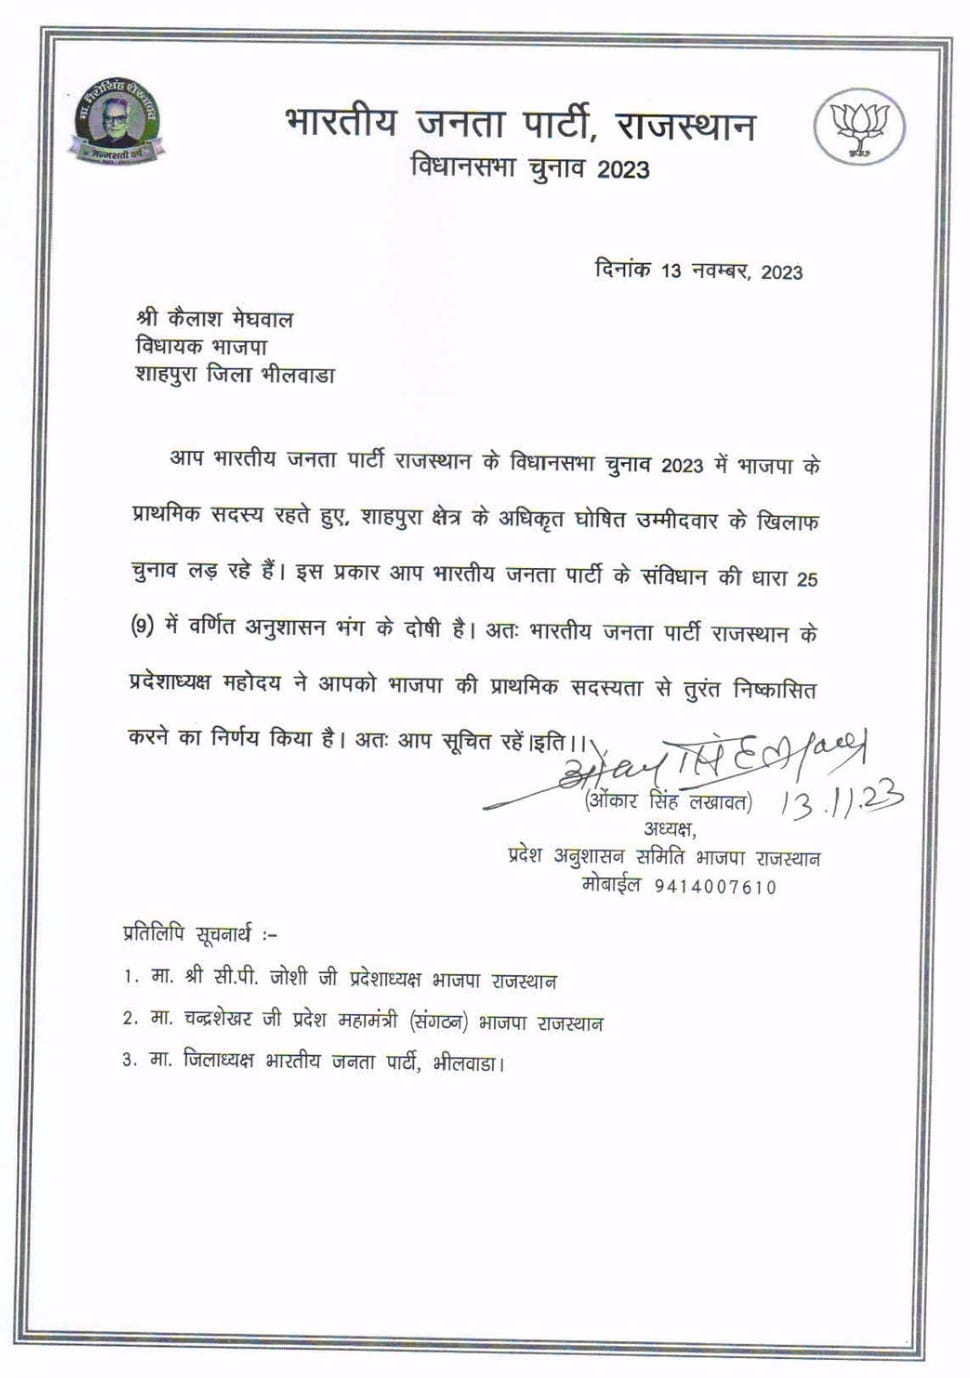 मा. भैरोसिंह शेखावत
जन्मशती वर्ष
भारतीय जनता पार्टी, राजस्थान
विधानसभा चुनाव 2023
दिनांक 13 नवम्बर, 2023
श्री कैलाश मेघवाल
विधायक भाजपा
शाहपुरा जिला भीलवाडा
आप भारतीय जनता पार्टी राजस्थान के विधानसभा चुनाव 2023 में भाजपा के
प्राथमिक सदस्य रहते हुए, शाहपुरा क्षेत्र के अधिकृत घोषित उम्मीदवार के खिलाफ
चुनाव लड़ रहे हैं। इस प्रकार आप भारतीय जनता पार्टी के संविधान की धारा 25
(9) में वर्णित अनुशासन भंग के दोषी है। अतः भारतीय जनता पार्टी राजस्थान के
प्रदेशाध्यक्ष महोदय ने आपको भाजपा की प्राथमिक सदस्यता से तुरंत निष्कासित
करने का निर्णय किया है। अतः आप सूचित रहें।इति।।
(ओंकार सिंह लखावत) 13.11.23
अध्यक्ष,
प्रदेश अनुशासन समिति भाजपा राजस्थान
मोबाईल 9414007610
प्रतिलिपि सूचनार्थ :–
1. मा. श्री सी.पी. जोशी जी प्रदेशाध्यक्ष भाजपा राजस्थान
2. मा. चन्द्रशेखर जी प्रदेश महामंत्री (संगठन) भाजपा राजस्थान
3. मा. जिलाध्यक्ष भारतीय जनता पार्टी, भीलवाडा।